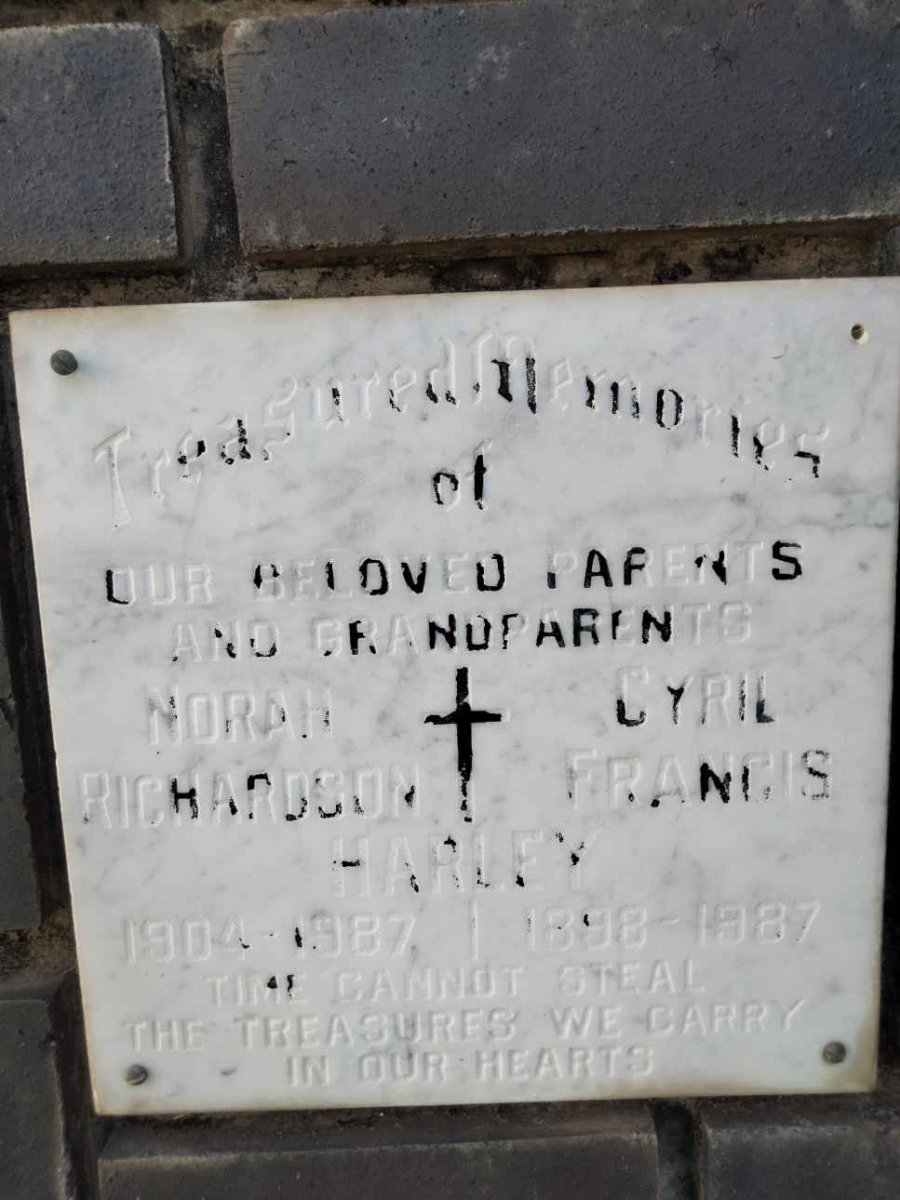 Treasured Memories
of
OUR BELOVED PARENTS
AND GRANDPARENTS
NORAH CYRIL
RICHARDSON FRANCIS
HARLEY
1904-1987 | 1898-1987
TIME CANNOT STEAL
THE TREASURES WE CARRY
IN OUR HEARTS